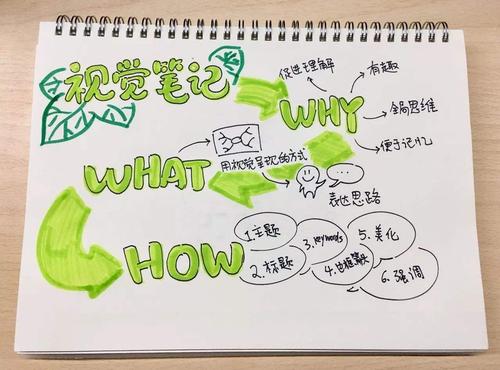 视觉笔记
WHY
促进理解
有趣
全局思维
便于记忆
WHAT
用视觉呈现的方式
表达思路
HOW
1.主题
2.标题
3.keywords
4.
5.美化
6.强调